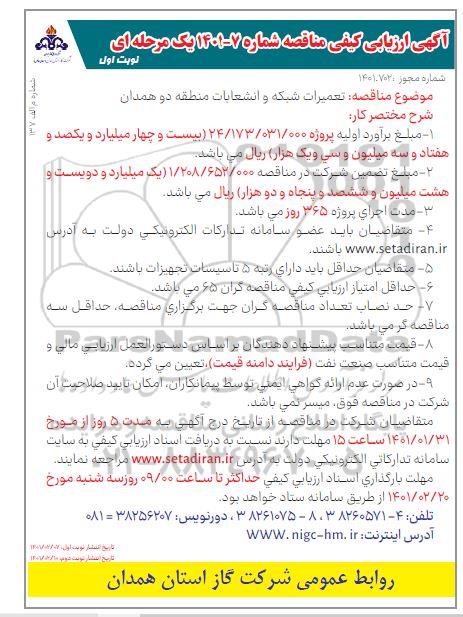 آگهی ارزیابی کیفی مناقصه شماره ۷-۱۴۰۱ یک مرحله ای
نوبت اول
شماره مجوز :۱۴۰۱.۷۰۲
موضوع مناقصه: تعمیرات شبکه و انشعابات منطقه دو همدان
شرح مختصر کار:
۱-مبلغ برآورد اولیه پروژه ۲۴/۱۷۳/۰۳۱/۰۰۰ (بیست و چهار میلیارد و یکصد و
هفتاد و سه میلیون و سی ویک هزار) ریال می باشد.
۲-مبلغ تضمین شرکت در مناقصه ۱/۲۰۸/۶۵۲/۰۰۰ (یک میلیارد و دویست و
هشت میلیون و ششصد و پنجاه و دو هزار) ریال می باشد.
۳-مدت اجرای پروژه ۳۶۵ روز می باشد.
۴- متقاضیان باید عضو سامانه تدارکات الکترونیکی دولت به آدرس
www.setadiran.ir باشند.
۵- متقاضیان حداقل باید دارای رتبه ۵ تاسیسات تجهیزات باشند.
۶- حداقل امتیاز ارزیابی کیفی مناقصه گران ۶۵ می باشد.
۷- حد نصاب تعداد مناقصه گران جهت برگزاری مناقصه، حداقل سه
مناقصه گر می باشد.
۸-قیمت متناسب پیشنهاد دهندگان بر اساس دستورالعمل ارزیابی مالی و
قیمت متناسب صنعت نفت (فرایند دامنه قیمت)،تعیین می گردد.
۹-در صورت عدم ارائه گواهی ایمنی توسط پیمانکاران، امکان تایید صلاحیت آن
شرکت در مناقصه فوق، میسر نمی باشد.
متقاضیان شرکت در مناقصه از تاریخ درج آگهی به مدت ۵ روز از مورخ
۱۴۰۱/۰۱/۳۱ ساعت ۱۵ مهلت دارند نسبت به دریافت اسناد ارزیابی کیفی به سایت
سامانه تدارکاتی الکترونیکی دولت به آدرس www.setadiran.ir مراجعه نمایند.
مهلت بارگذاری اسناد ارزیابی کیفی حداکثر تا ساعت ۰۹/۰۰ روزسه شنبه مورخ
۱۴۰۱/۰۲/۲۰ از طریق سامانه ستاد خواهد بود.
تلفن: ۴-۳۸۲۶۰۵۷۱ ، ۸ - ۳۸۲۶۱۰۷۵ ، دورنویس: ۳۸۲۵۶۲۰۷ = ۰۸۱
آدرس اینترنت: WWW. nigc-hm. ir
تاریخ انتشار نوبت اول: ۱۴۰۱/۰۲/۰۷
تاریخ انتشار نوبت دوم: ۱۴۰۱/۰۲/۱۰
روابط عمومی شرکت گاز استان همدان